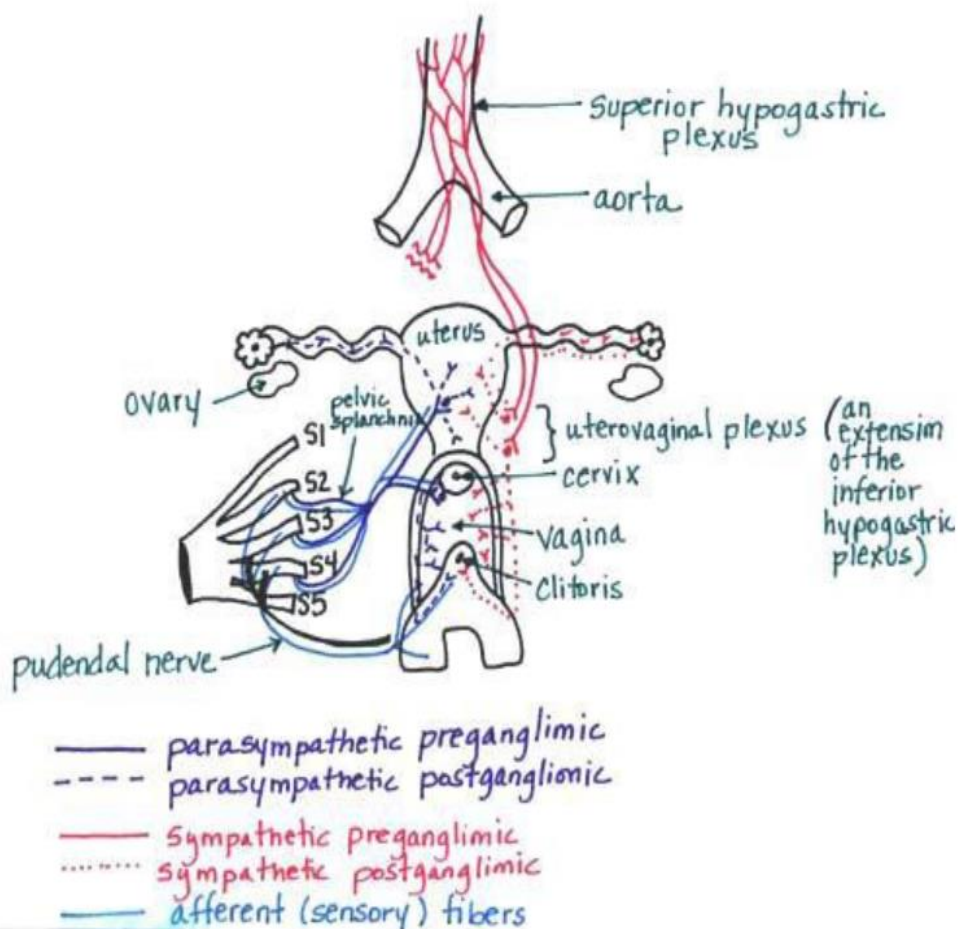 Superior hypogastric
plexus
aorta
uterus
ovary
pelvic
splanchnic
S1
S2
S3
S4
S5
uterovaginal plexus (an
extensim
of the
inferior
hypogastric
plexus)
cervix
vagina
Clitoris
pudendal nerve
parasympathetic preganglimic
parasympathetic postganglionic
sympathetic preganglimic
sympathetic postganglimic
afferent (sensory) fibers